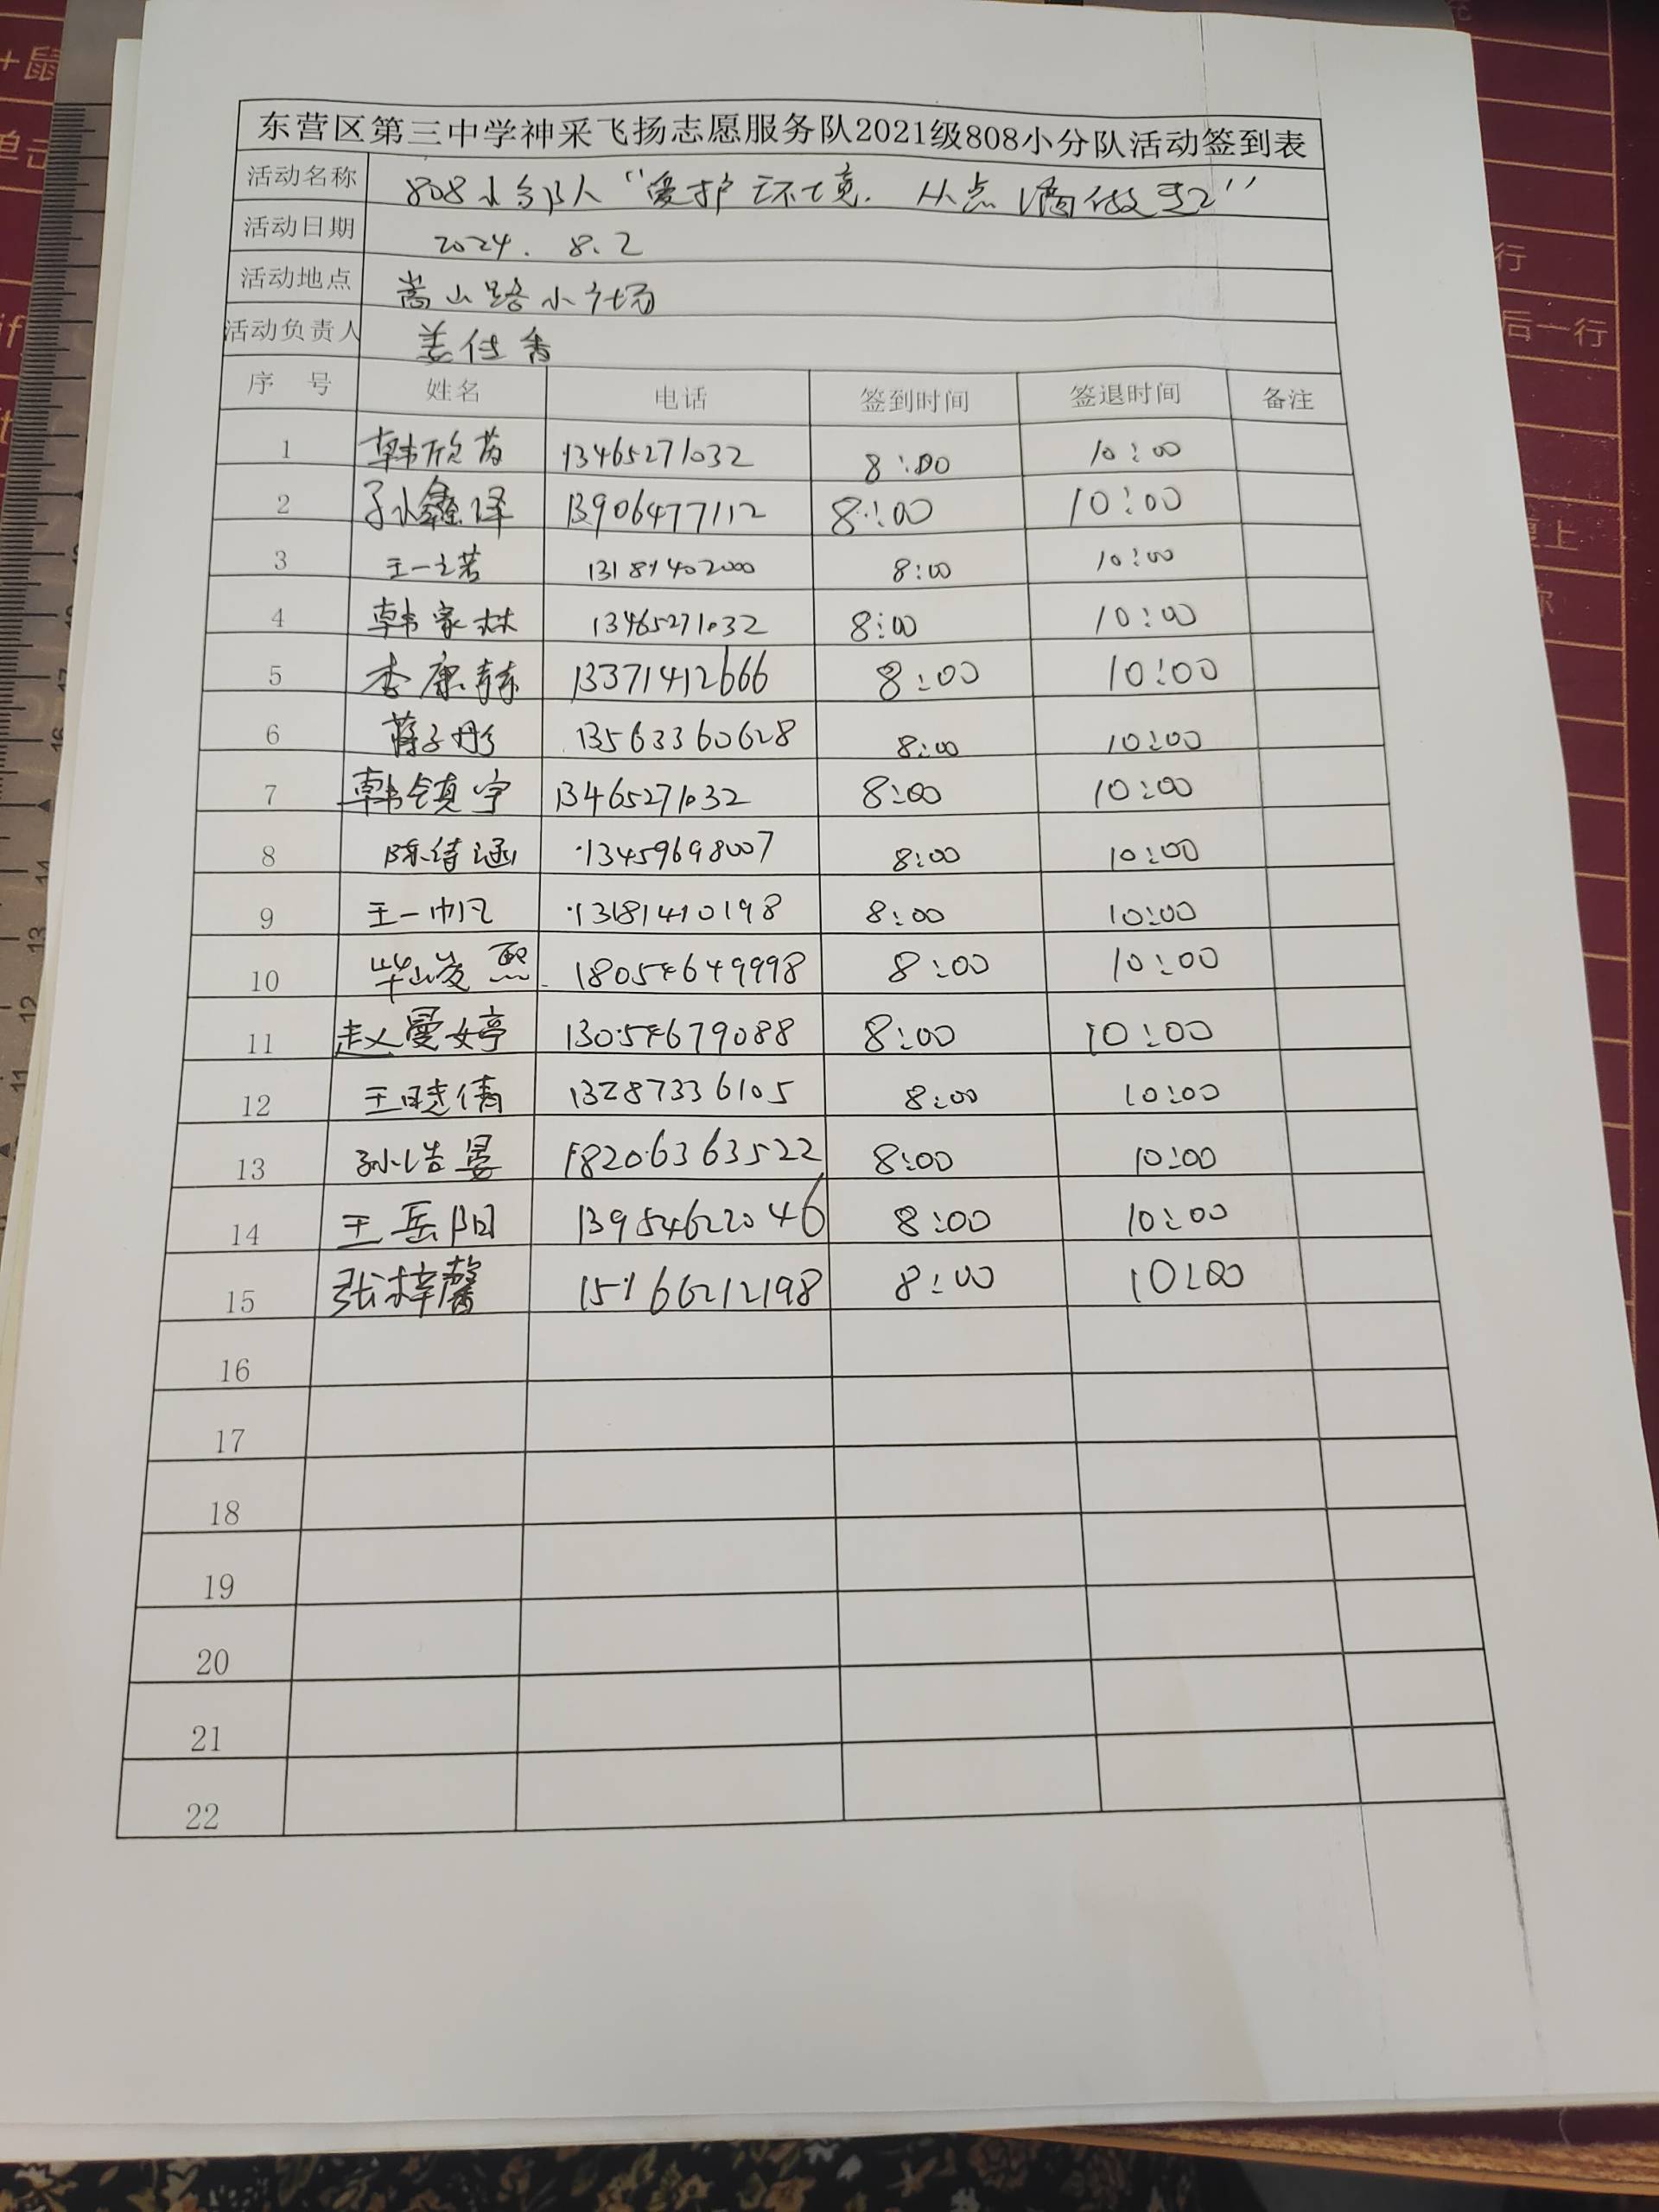 东营区第三中学神采飞扬志愿服务队2021级808小分队活动签到表
活动名称 808小分队 "爱护环境. 从点滴做起"
活动日期 2024. 8. 2
活动地点 嵩山路小广场
活动负责人 姜仕香
序 号 姓名 电话 签到时间 签退时间 备注
1 韩欣茹 13465271032 8:00 10:00
2 孙鑫译 13906477112 8:00 10:00
3 王一之若 13181402000 8:00 10:00
4 韩家林 13465271032 8:00 10:00
5 李康赫 13371412666 8:00 10:00
6 蒋子彤 13563360628 8:00 10:00
7 韩镇宇 13465271032 8:00 10:00
8 陈绮涵 13459698007 8:00 10:00
9 王一帆 13181410198 8:00 10:00
10 毕凌熙 18054649998 8:00 10:00
11 赵曼婷 13054679088 8:00 10:00
12 王晓倩 13287336105 8:00 10:00
13 孙浩晏 18206363522 8:00 10:00
14 王岳阳 13954622046 8:00 10:00
15 张梓馨 15166212198 8:00 10:00
16
17
18
19
20
21
22